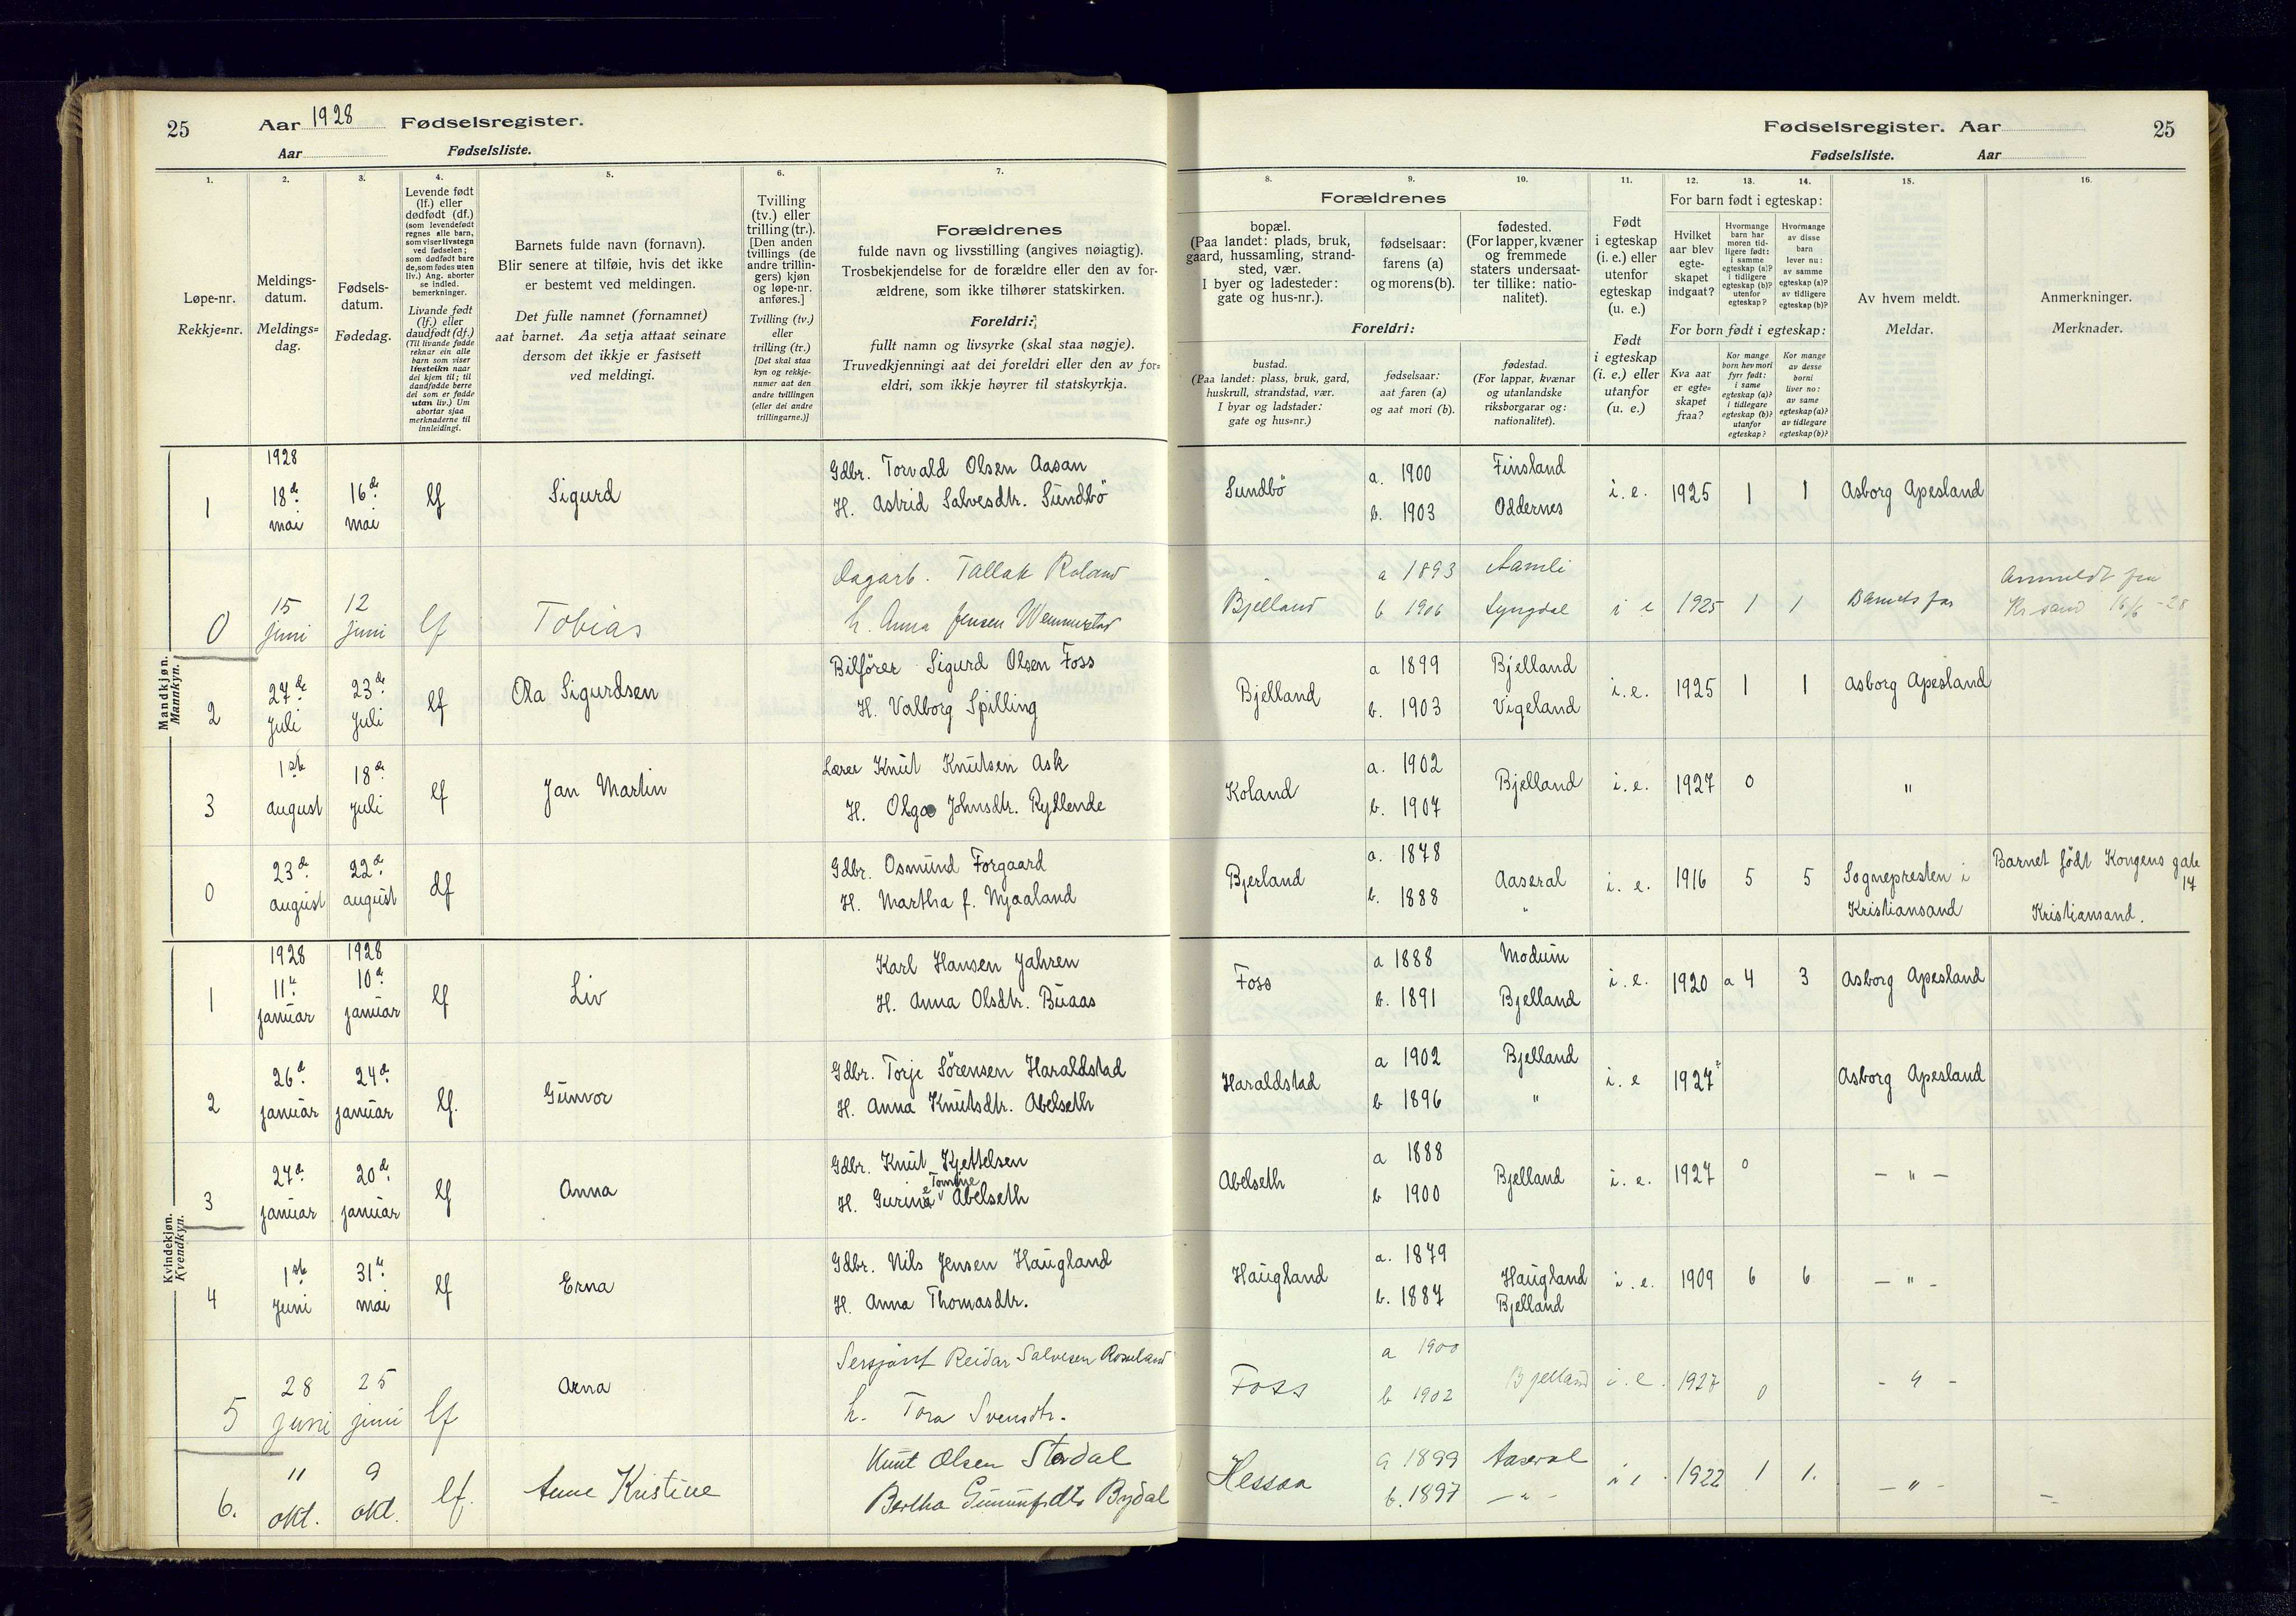 25
Aar 1928 Fødselsregister.
Aar Fødselsliste.
Fødselsregister. Aar
25
Fødselsliste. Aar
1.
Løpe-nr.
Rekkje=nr.
2.
Meldings-
datum.
Meldings=
dag.
3.
Fødsels-
datum.
Fødedag.
4.
Levende født
(lf.) eller
dødfødt (df.)
(som levendefødt
regnes alle barn,
som viser livstegn
ved fødselen;
som dødfødt bare
de, som fødes uten
liv.) Ang. aborter
se indled.
bemerkninger.
Livande født
(lf.) eller
daudfødt (df.)
(Til livande fødde
reknar ein alle
barn som viser
livsteikn naar
dei kjem til; til
daudfødde berre
dei som er fødde
utan liv.) Um
abortar sjaa
merknaderne til
innleidingi.
5.
Barnets fulde navn (fornavn).
Blir senere at tilføie, hvis det ikke
er bestemt ved meldingen.
Det fulle namnet (fornamnet)
aat barnet. Aa setja attaat seinare
dersom det ikkje er fastsett
ved meldingi.
6.
Tvilling
(tv.) eller
trilling (tr.).
[Den anden
tvillings (de
andre trillin-
gers) kjøn
og løpe-nr.
anføres.]
Tvilling (tv.)
eller
trilling (tr.)
[Det skal staa
kyn og rekkje-
numer aat den
andre tvillingen
(eller dei andre
trillingarne.)]
7.
Forældrenes
fulde navn og livsstilling (angives nøiagtig).
Trosbekjendelse for de forældre eller den av for-
ældrene, som ikke tilhører statskirken.
Foreldri:
fullt namn og livsyrke (skal staa nøgje).
Truvedkjenningi aat dei foreldri eller den av for-
eldri, som ikkje høyrer til statskyrkja.
Forældrenes
8.
bopæl.
(Paa landet: plads, bruk,
gaard, hussamling, strand-
sted, vær.
I byer og ladesteder:
gate og hus-nr.).
9.
fødselsaar:
farens (a)
og morens (b).
10.
fødested.
(For lapper, kvæner
og fremmede
staters undersaat-
ter tillike: natio-
nalitet).
Foreldri:
bustad.
(Paa landet: plass, bruk, gard,
huskrull, strandstad, vær.
I byar og ladstader:
gate og hus=nr.)
fødselsaar:
aat faren (a)
og aat mori (b).
fødestad.
(For lappar, kvænar
og utanlandske
riksborgarar og:
nationalitet).
11.
Født
i egteskap
(i. e.) eller
utenfor
egteskap
(u. e.)
Født
i egteskap
(i. e.) eller
utanfor
(u. e.)
For barn født i egteskap:
12.
Hvilket
aar blev
egte-
skapet
indgaat?
13.
Hvormange
barn har
moren tid-
ligere født:
i samme
egteskap (a)?
i tidligere
egteskap (b)?
utenfor
egteskap?
14.
Hvormange
av disse
barn
lever nu:
av samme
egteskap (a)?
av tidligere
egteskap (b)?
For born født i egteskap:
Kva aar
er egte=
skapet
fraa?
Kor mange
born hev mori
fyrr født:
i same
egteskap (a)?
i tidlegare
egteskap (b)?
utanfor
egteskap?
Kor mange
av desse
borni
liver no:
av same
egteskap (a)?
av tidlegare
egteskap (b)?
15.
Av hvem meldt.
Meldar.
16.
Anmerkninger.
Merknader.
Mandkjøn.
Mannkyn.
1 1928 18de mai 16de mai lf Sigurd Gdbr. Torvald Olsen Aasan Sundbö a. 1900 Finsland i. e. 1925 1 1 Asborg Apesland
H. Astrid Salvesdtr. Sundbö b. 1903 Oddernes
0 15 juni 12 juni lf Tobias Dagarb. Tallak Roland Bjelland a 1893 Aamli i e 1925 1 1 Barnets far Anmeldt fra
h. Anna Jensen Wemmestad b 1906 Lyngdal Kr sand 16/6 -28
2 27de juli 23de juli lf Ola Sigurdsen Bilförer Sigurd Olsen Foss Bjelland a 1899 Bjelland i. e. 1925 1 1 Asborg Apesland
H. Valborg Spilling b. 1903 Vigeland
3 1ste august 18de juli lf Jan Martin Lærer Knut Knutsen Ask Koland a. 1902 Bjelland i. e. 1927 0 "
H. Olga Johnsdtr. Ryllende b. 1907
0 23de august 22de august df Gdbr. Osmund Forgaard Bjerland a. 1878 Aaseral i. e. 1916 5 5 Sognepresten i Kristiansand Barnet födt Kongens gate 17
H. Martha f. Njaaland b. 1888 " Kristiansand.
Kvindekjøn.
Kvendkyn.
1 1928 11te januar 1928 10de januar lf Liv Karl Hansen Jahren Foss a 1888 Modum i. e. 1920 a 4 3 Asborg Apesland
H. Anna Olsdtr. Buaas b. 1891 Bjelland
2 26de januar 24de januar lf. Gunvor Gdbr. Torje Sörensen Haraldstad Haraldstad a 1902 Bjelland i. e 1927 Asborg Apesland
H. Anna Knutsdtr. Abelseth b 1896 "
3 27de januar 20de januar lf Anna Gdbr. Knut Kjettelsen Abelseth a 1888 Bjelland i. e. 1927 0 - " -
H. Gurine Tomine Abelseth b 1900
4 1ste juni 31te mai lf Erna Gdbr. Nils Jensen Haugland Haugland a. 1879 Haugland i. e. 1909 6 6 - " -
H. Anna Thomasdtr. b. 1887 Bjelland
5 28 juni 25 juni lf Arna Sersjant Reidar Salvesen Rosseland Foss a 1900 Bjelland i. e. 1927 0 - " -
h. Tora Svensdtr. b 1902
6. 11 okt. 9 okt. lf. Anne Kristine Knut Olsen Stordal Hessaa a 1899 Aaseral i e 1922 1 1. - " -
Bertha Bydal b. 1897 - " -